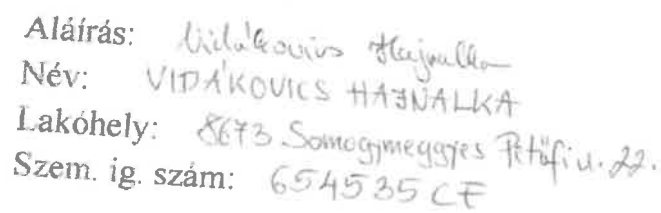 Aláírás: Vidákovics Hajnalka
Név: VIDÁKOVICS HAJNALKA
Lakóhely: 8673 Somogymeggyes Petőfi u. 22.
Szem. ig. szám: 654535 CE